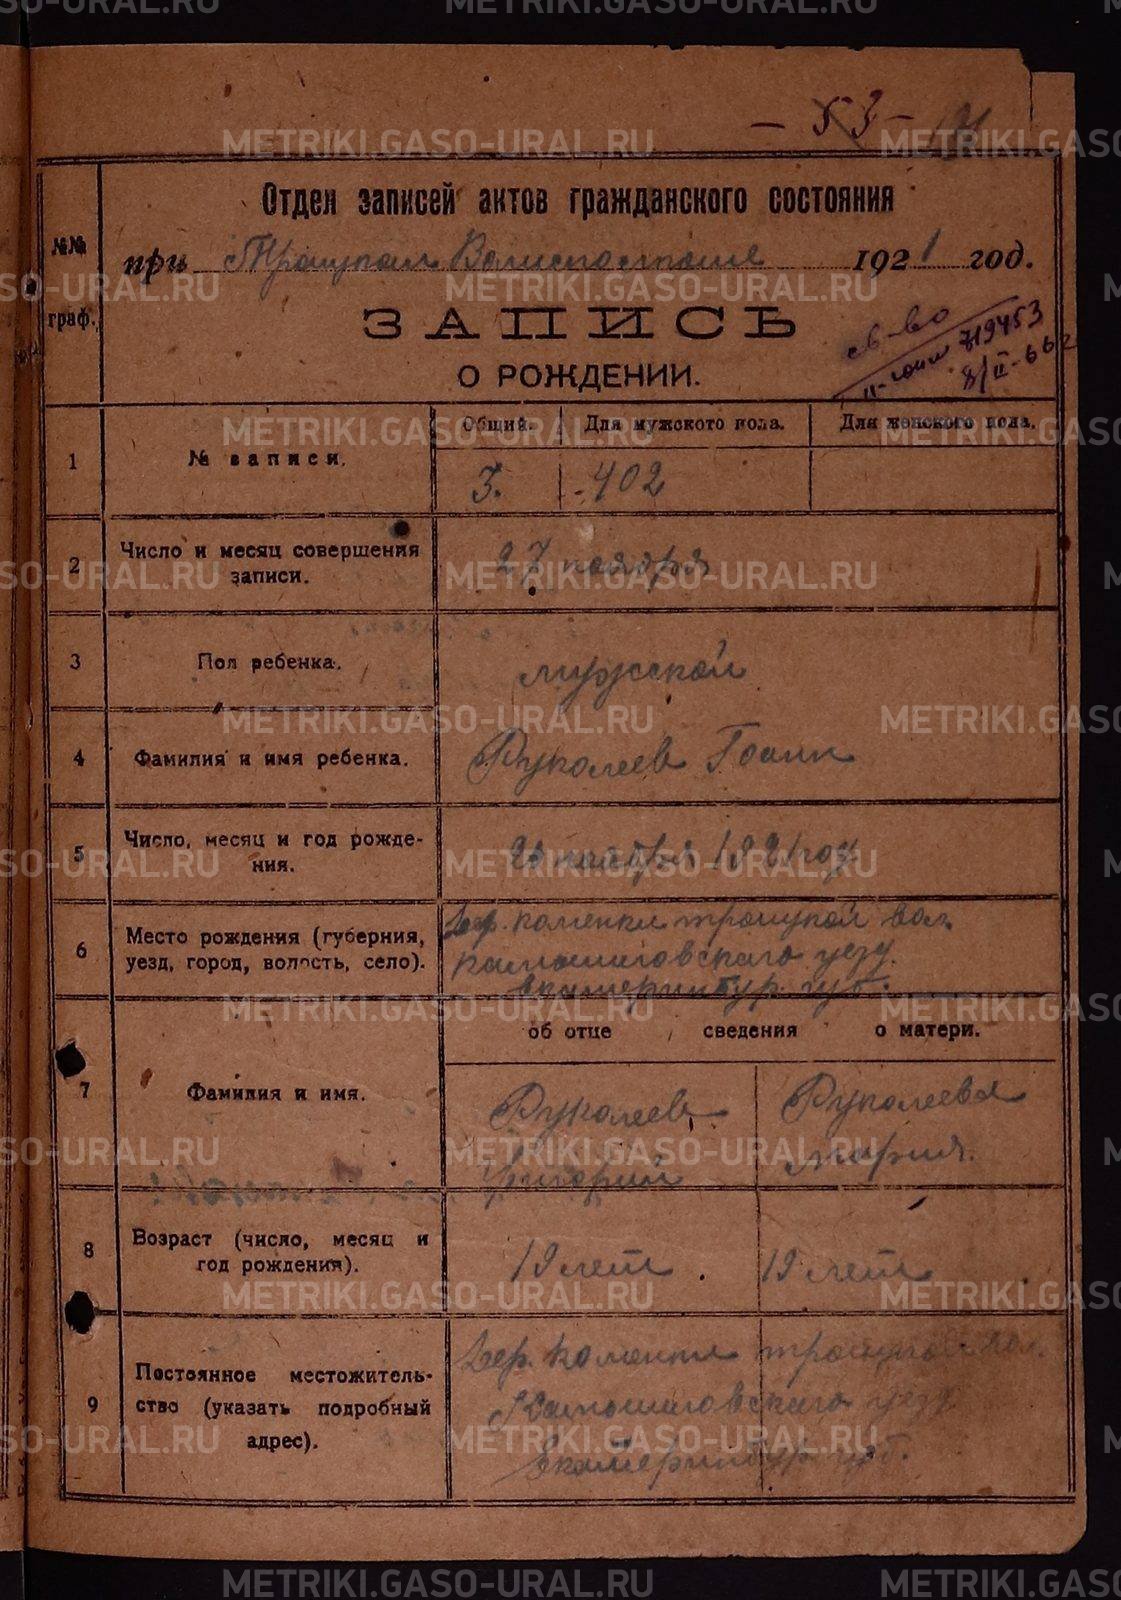 METRIKI.GASO-URAL.RU METRIKI.GASO-URAL.RU
— 53 —
Отдел записей актов гражданского состояния
при Троицком Волисполкоме 1921 год.
ЗАПИСЬ
О РОЖДЕНИИ.
св-во
719453
8/II-66г
№№ граф.
1 № записи. Общий. Для мужского пола. Для женского пола.
3. 402
2 Число и месяц совершения
записи.
27 ноября
3 Пол ребенка. мужской
4 Фамилия и имя ребенка. Руколеев Иоанн
5 Число, месяц и год рожде-
ния.
ноября 1921 году
6 Место рождения (губерния,
уезд, город, волость, село).
Дер. Каменки Троицкой вол.
Камышловскаго уезд.
Екатеринбур. губ.
об отце сведения о матери.
7 Фамилия и имя.
Руколеев Руколеева
Григорий Мария.
8 Возраст (число, месяц и
год рождения).
19 лет. 19 лет
9 Постоянное местожитель-
ство (указать подробный
адрес).
Дер. Каменки Троицкой вол.
Камышловскаго уезд
Екатеринбур губ.
METRIKI.GASO-URAL.RU METRIKI.GASO-URAL.RU